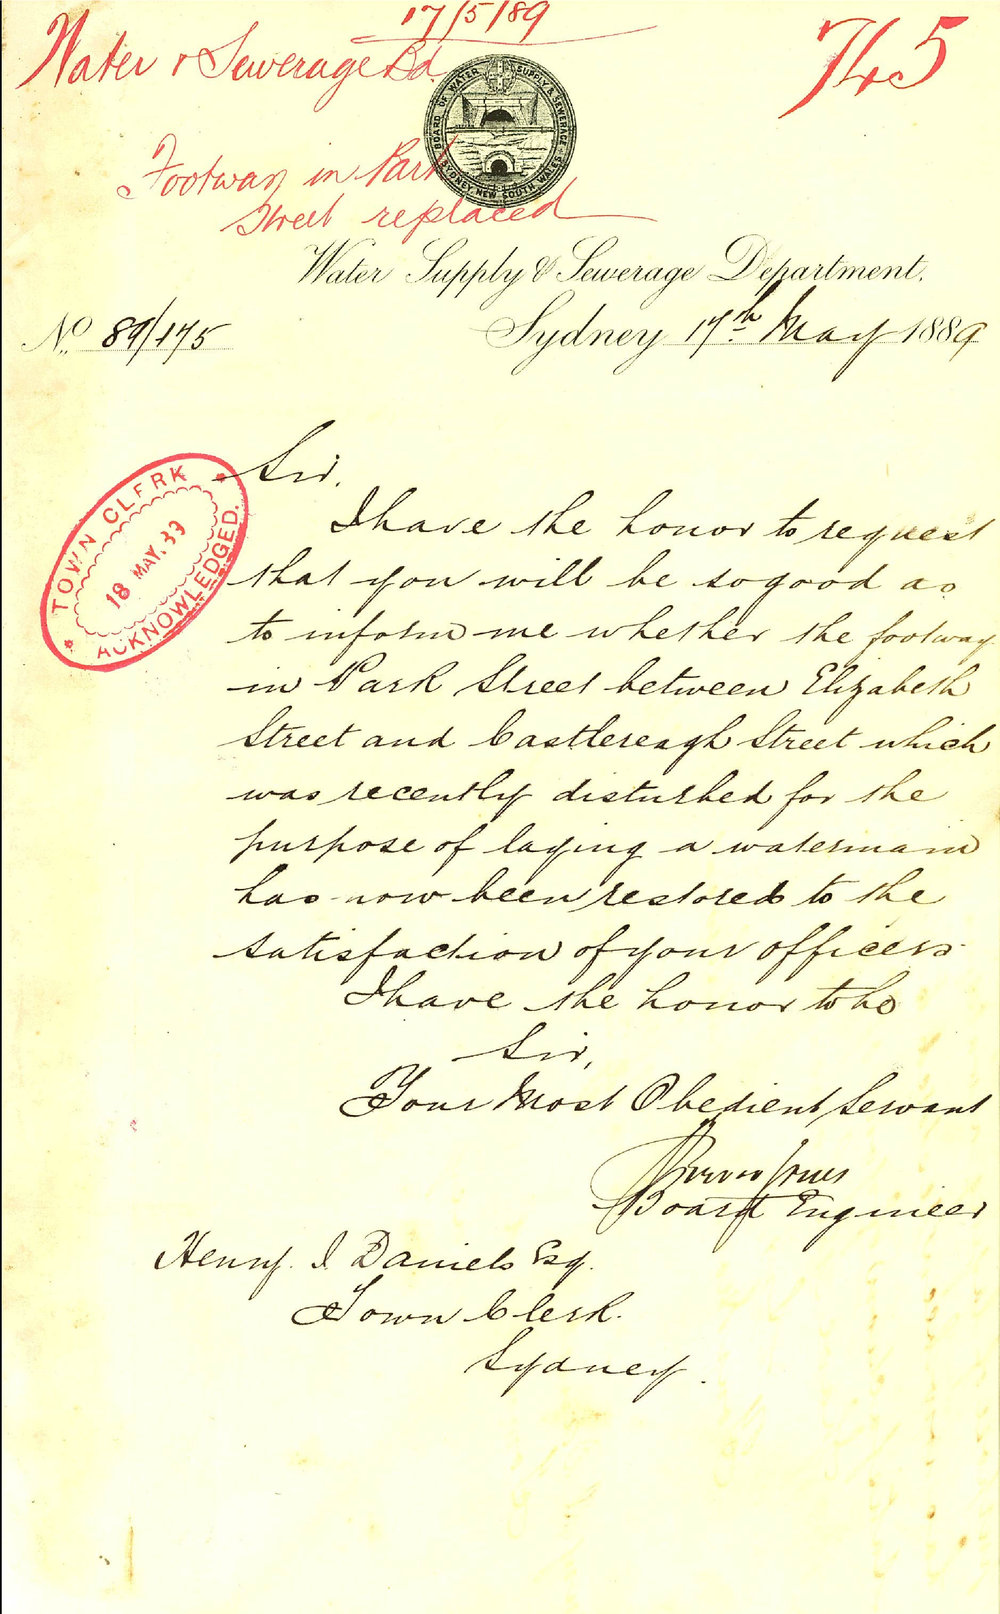 17/5/89
Water & Sewerage Bd.
745
BOARD OF WATER SUPPLY & SEWERAGE
SYDNEY NEW SOUTH WALES
Footway in Park
Street replaced
Water Supply & Sewerage Department.
No. 89/175
Sydney 17th May 1889
TOWN CLERK
18 MAY. 89
ACKNOWLEDGED.
Sir,
I have the honor to request
that you will be so good as
to inform me whether the footway
in Park Street between Elizabeth
Street and Castlereagh Street which
was recently disturbed for the
purpose of laying a watermain
has now been restored to the
satisfaction of your officers
I have the honor to be
Sir,
Your Most Obedient Servant
Jones
Board Engineer
Henry. J. Daniels Esq.
Town Clerk.
Sydney.